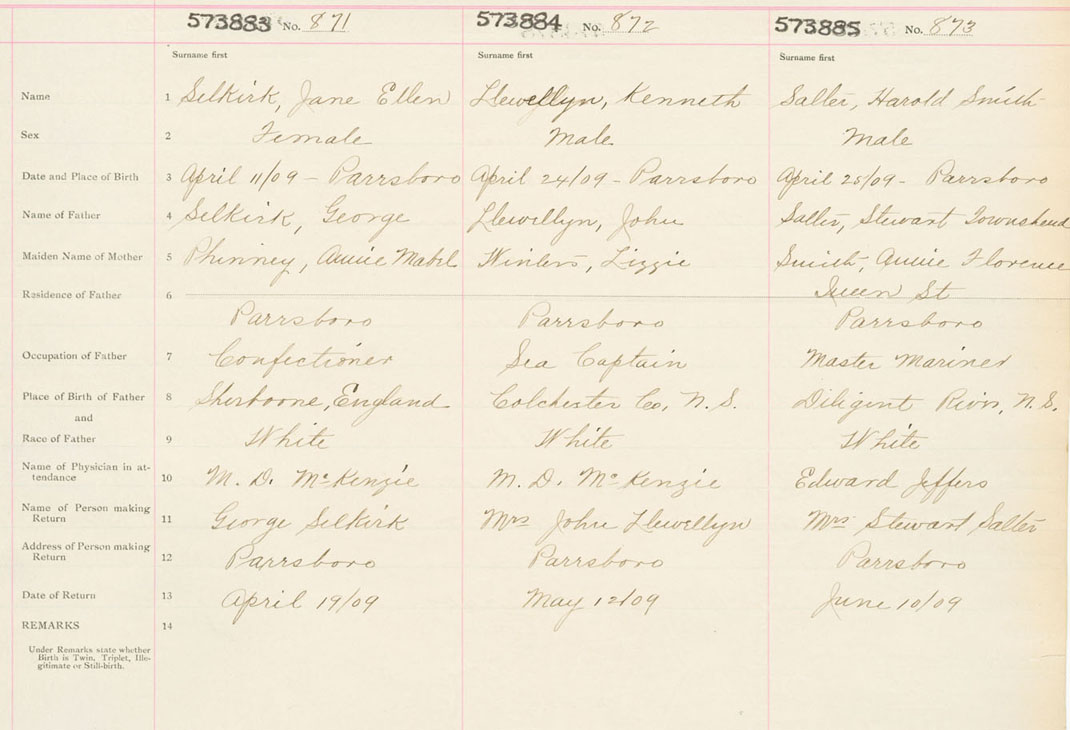 573883 No. 871 573884 No. 872 573885 No. 873
Surname first Surname first Surname first
Name 1 Selkirk, Jane Ellen Llewellyn, Kenneth Salter, Harold Smith
Sex 2 Female Male Male
Date and Place of Birth 3 April 11/09 - Parrsboro April 24/09 - Parrsboro April 25/09 - Parrsboro
Name of Father 4 Selkirk, George Llewellyn, John Salter, Stewart Townshend
Maiden Name of Mother 5 Phinney, Annie Mabel Winters, Lizzie Smith, Annie Florence
Residence of Father 6 Queen St
Parrsboro Parrsboro Parrsboro
Occupation of Father 7 Confectioner Sea Captain Master Mariner
Place of Birth of Father 8 Sherboone, England Colchester Co, N.S. Diligent River, N.S.
and
Race of Father 9 White White White
Name of Physician in at-
tendance 10 M. D. McKenzie M. D. McKenzie Edward Jeffers
Name of Person making
Return 11 George Selkirk Mrs John Llewellyn Mrs Stewart Salter
Address of Person making
Return 12 Parrsboro Parrsboro Parrsboro
Date of Return 13 April 19/09 May 12/09 June 10/09
REMARKS 14
Under Remarks state whether
Birth is Twin, Triplet, Ille-
gitimate or Still-birth.